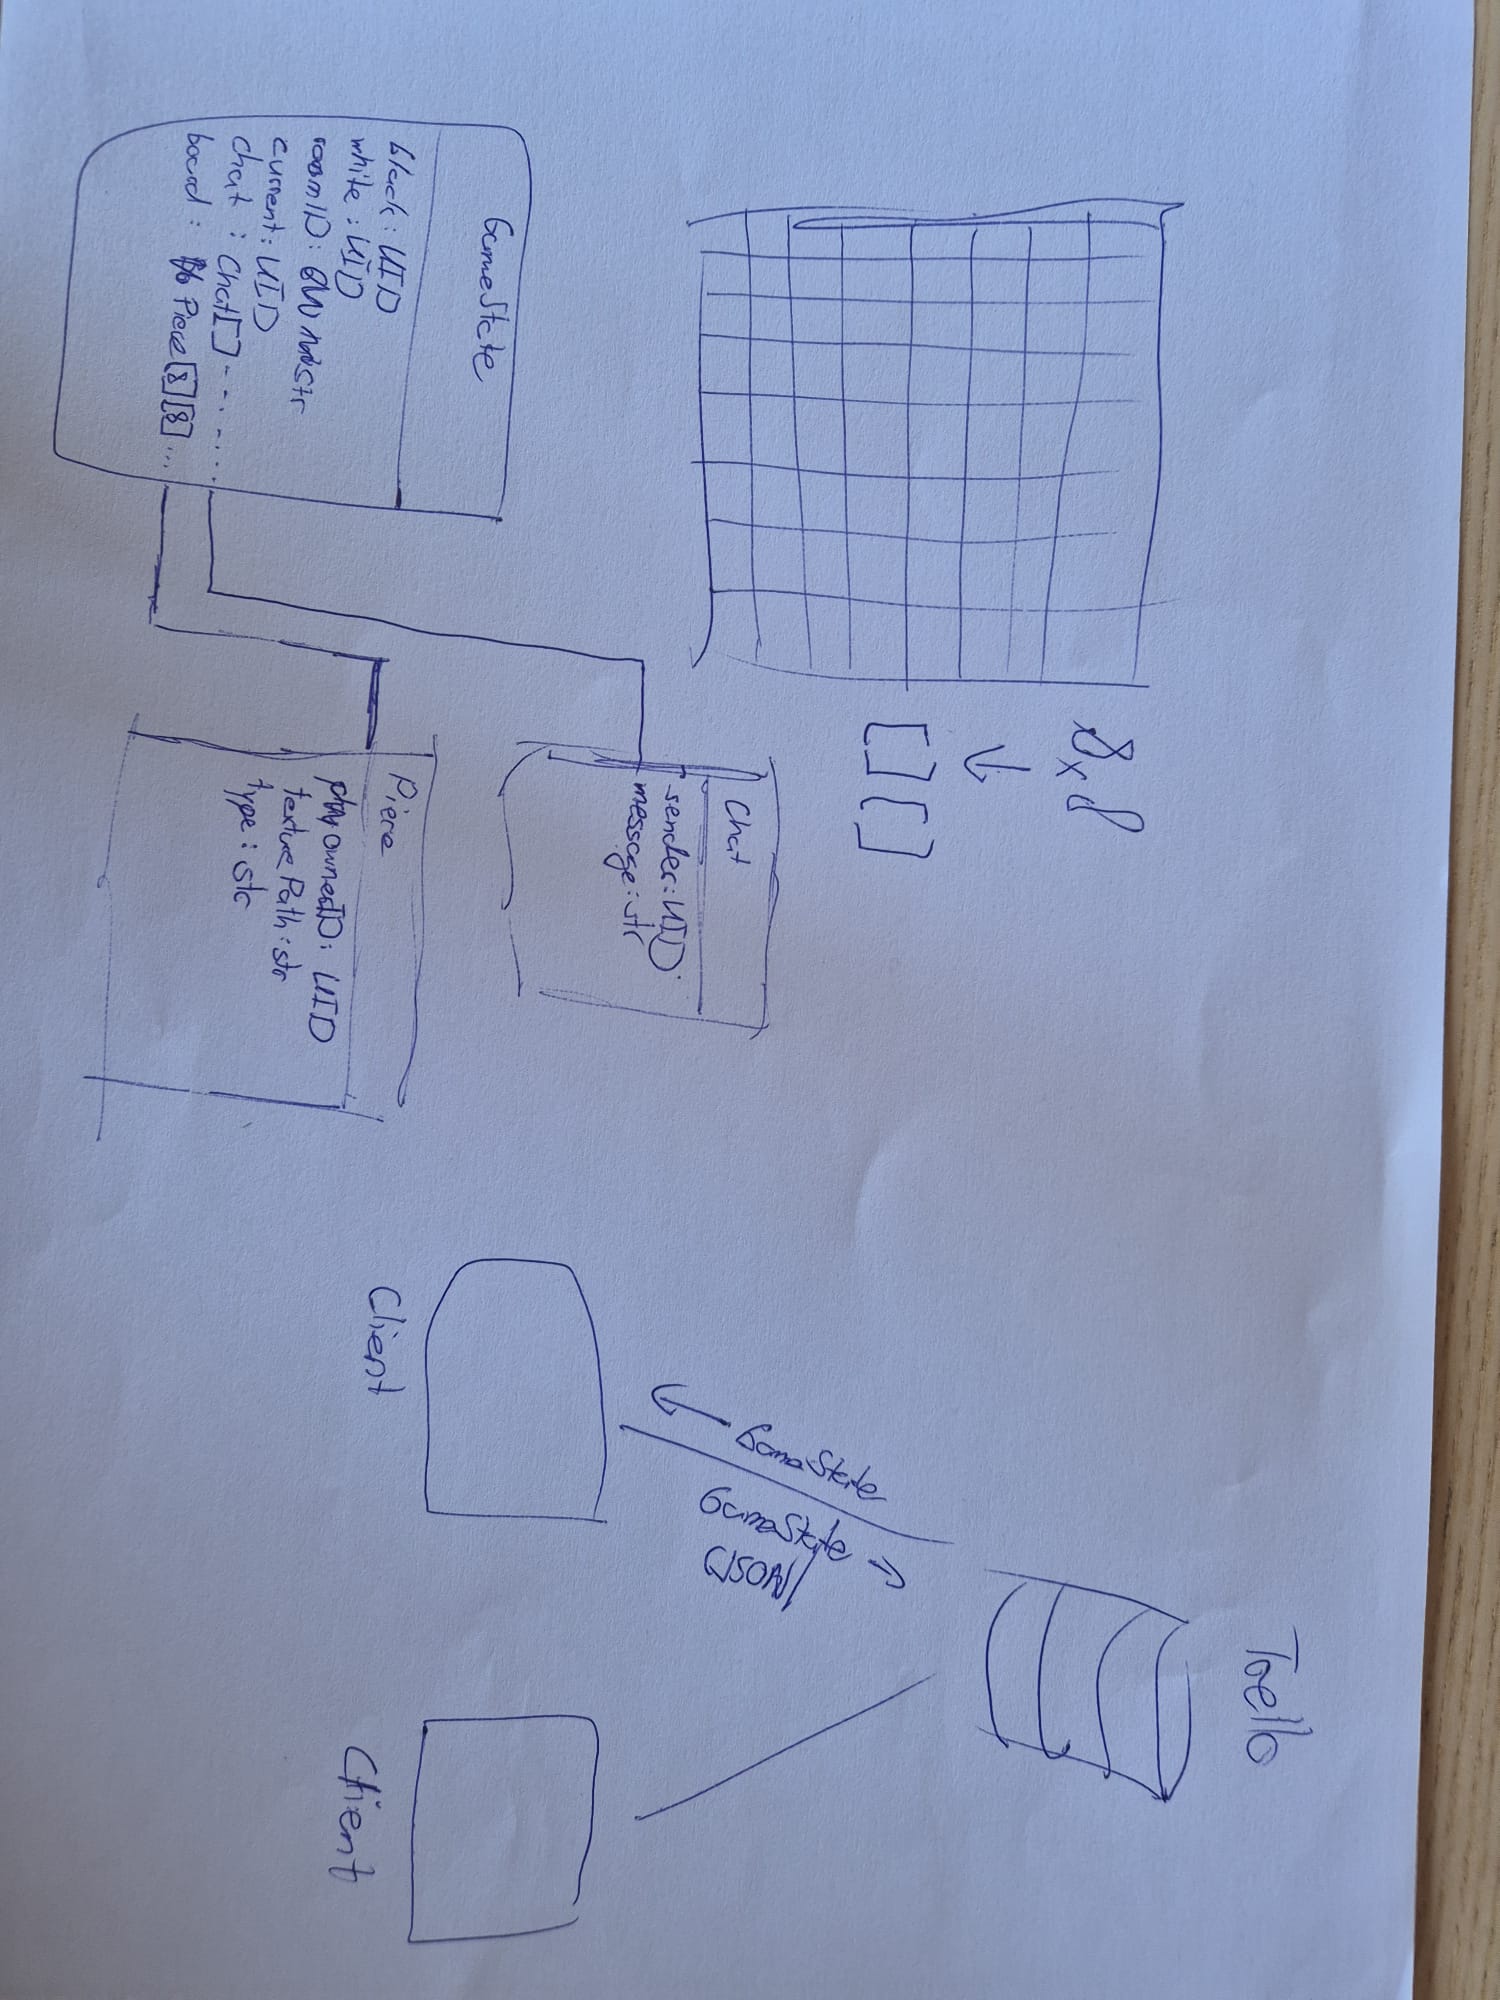 GameState
black : UID
white : UID
roomID : rndStr
current : UID
chat : Chat[] - - . - . .
board : Piece[8][8] ...
8x8
↓
[] []
Chat
sender : UID
message : str
Piece
ownerID : UID
texturePath : str
type : str
Trello
← GameState
GameState →
(JSON)
Client
Client